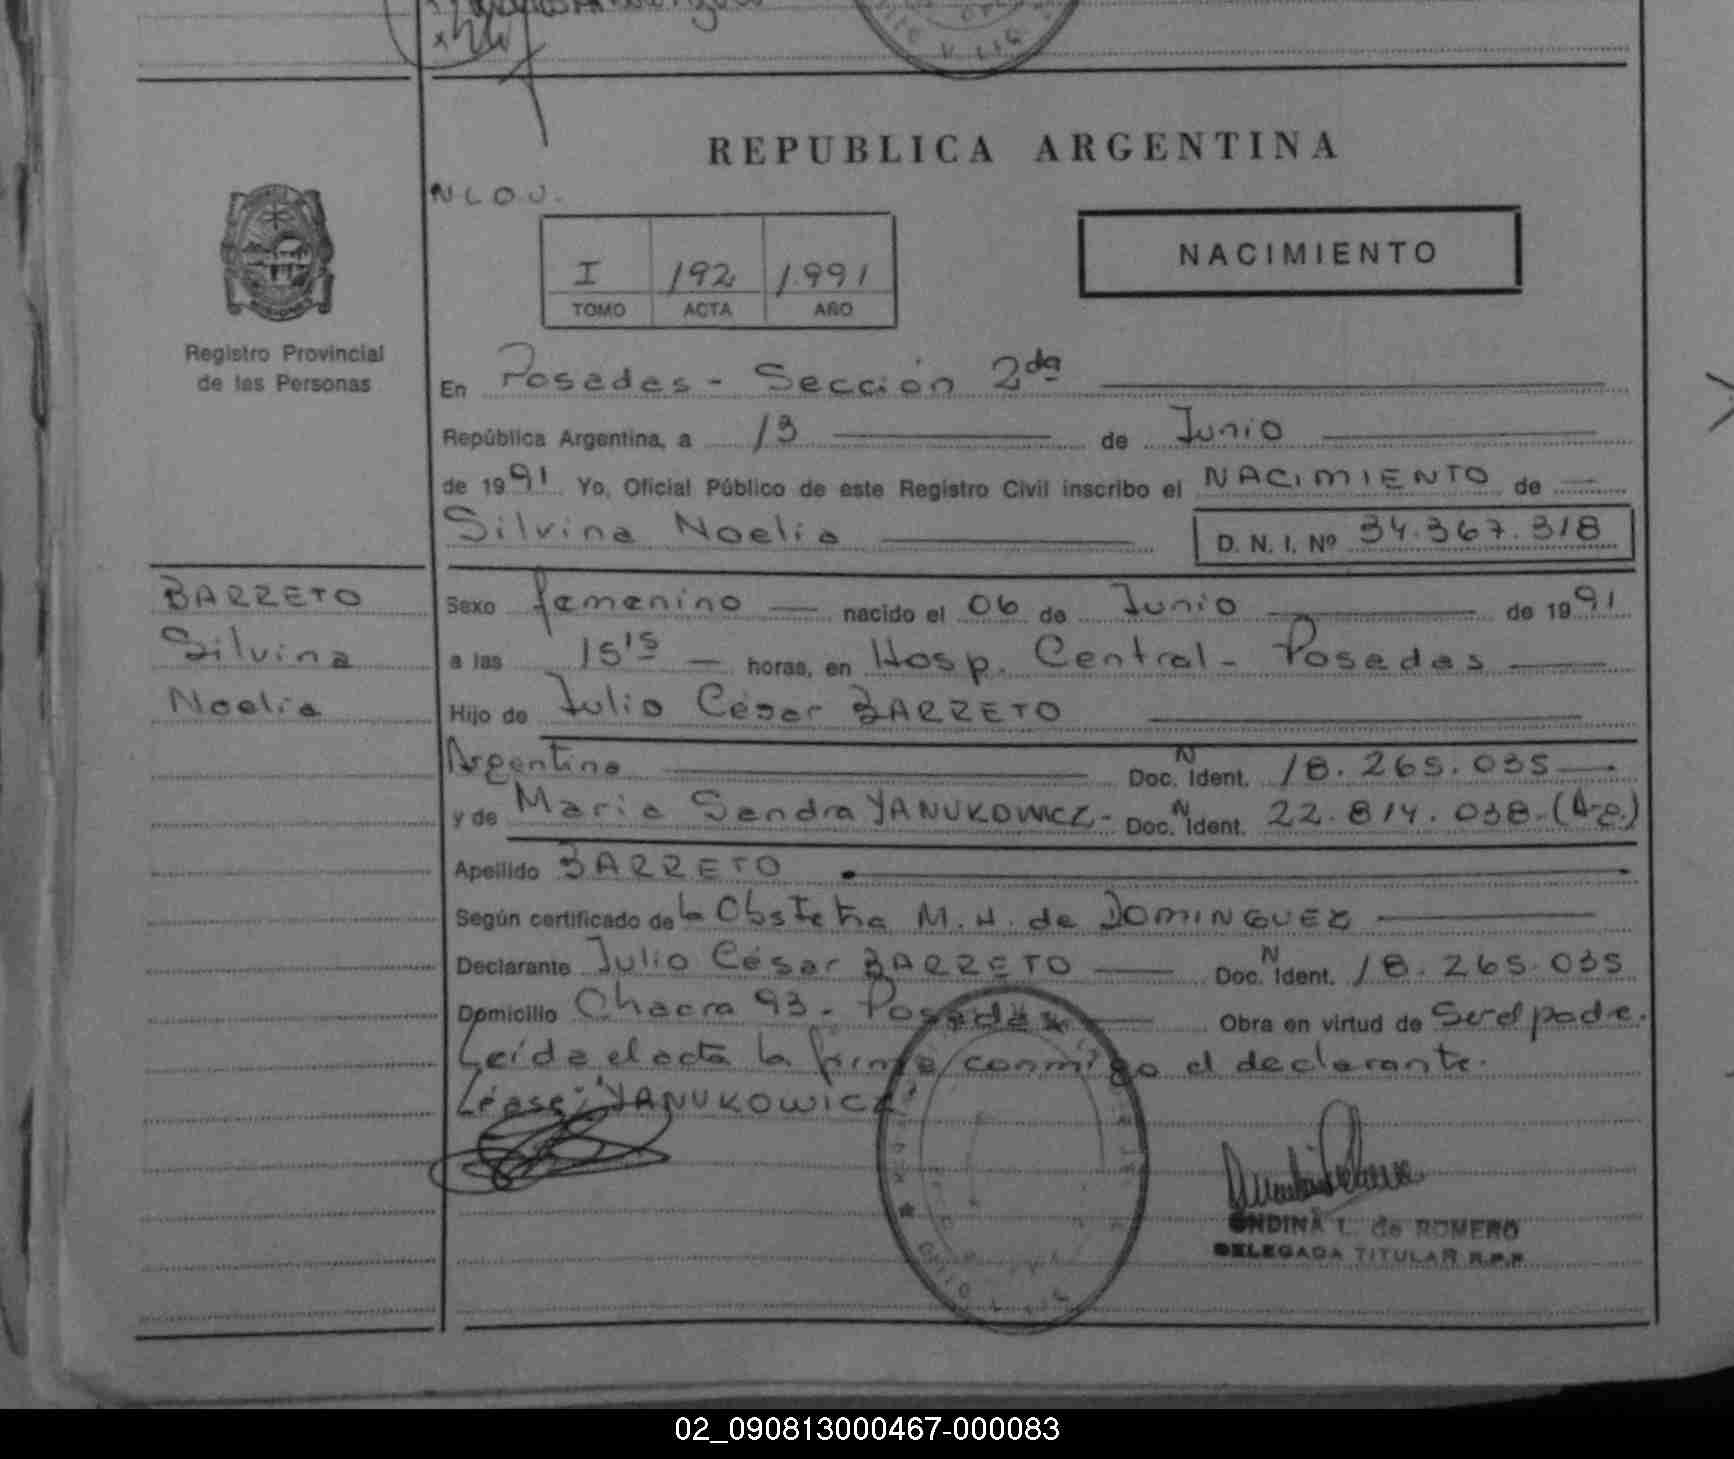 REPUBLICA ARGENTINA
N L O U.
NACIMIENTO
I 192 1.991
TOMO ACTA AÑO
Registro Provincial
de las Personas
En Posadas - Sección 2da
República Argentina, a 13 de Junio
de 1991 Yo, Oficial Público de este Registro Civil inscribo el NACIMIENTO de
Silvina Noelia D. N. I. Nº 34.367.318
BARRETO
Silvina
Noelia
Sexo femenino nacido el 06 de Junio de 1991
a las 15 15 horas, en Hosp. Central - Posadas
Hijo de Julio César BARRETO
Argentino Doc. N Ident. 18.265.035
y de Maria Sandra YANUKOWICZ - Doc. N Ident. 22.814.038. (Arg.)
Apellido BARRETO
Según certificado de la Obstetra M. H. de DOMINGUEZ
Declarante Julio César BARRETO Doc. N Ident. 18.265.035
Domicilio Chacra 93 - Posadas Obra en virtud de Ser el padre.
Leída el acta la firma conmigo el declarante.
Léase: "YANUKOWICZ"
ONDINA L. de ROMERO
DELEGADA TITULAR R.P.P.
02_090813000467-000083